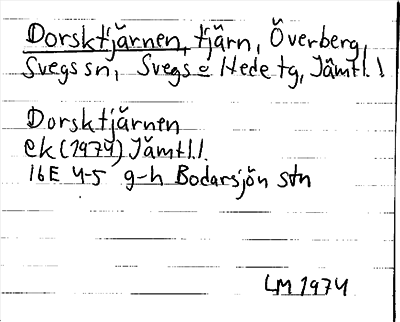 Dorsktjärnen, tjärn, Överberg,
Svegs sn, Svegs o Hede tg, Jämtl. l
Dorsktjärnen
ek (1974) Jämtl.l.
16E 4-5 g-h Bodarsjön stn
LM 1974